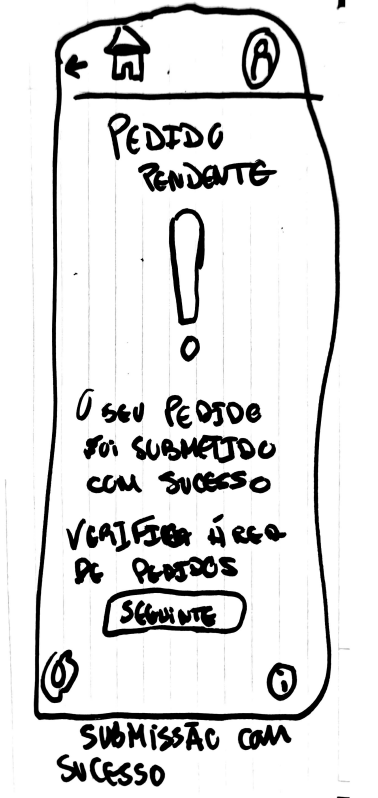 PEDIDO
PENDENTE
!
O SEU PEDIDO
FOI SUBMETIDO
COM SUCESSO
VERIFICA ÁREA
DE PEDIDOS
SEGUINTE
i
SUBMISSÃO COM
SUCESSO